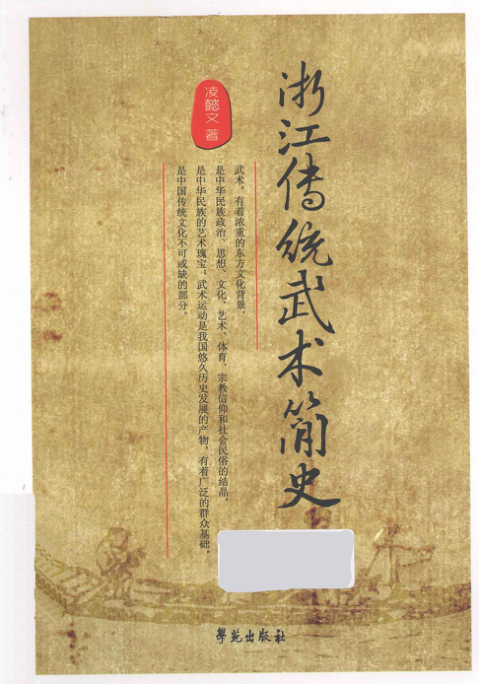 浙江传统武术简史
凌懿文 著
武术，有着浓重的东方文化背景，
是中华民族政治、思想、文化、艺术、体育、宗教信仰和社会民俗的结晶，
是中华民族的艺术瑰宝；武术运动是我国悠久历史发展的产物，有着广泛的群众基础，
是中国传统文化不可或缺的部分。
學苑出版社